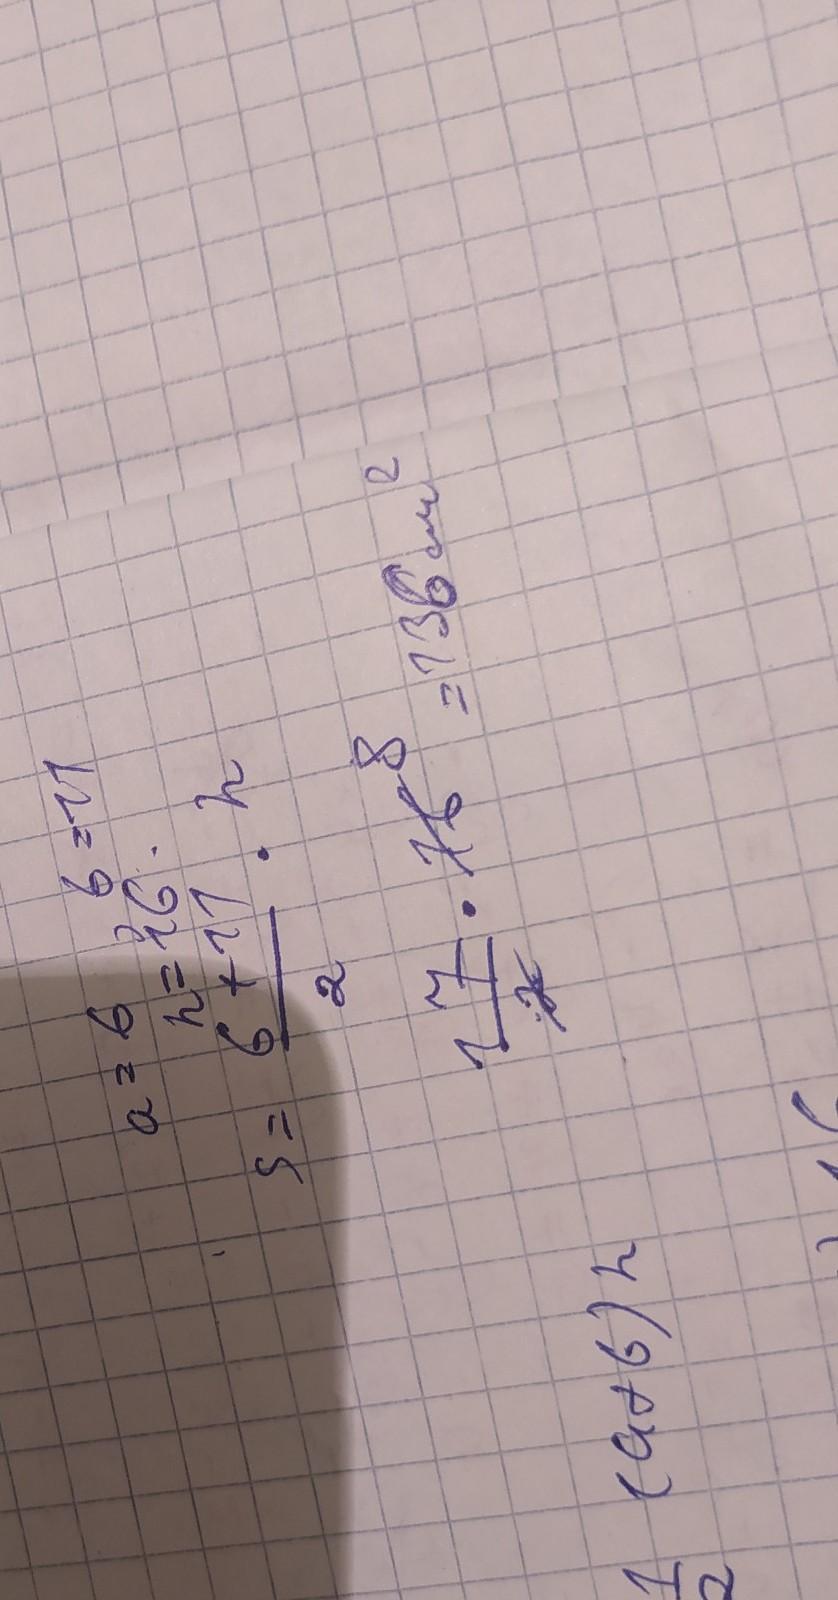 a = 6 b = 11
h = 16.
S = (6 + 11)/2 · h
17/2 · 16 8 = 136 см²
1/2 (a + b) h